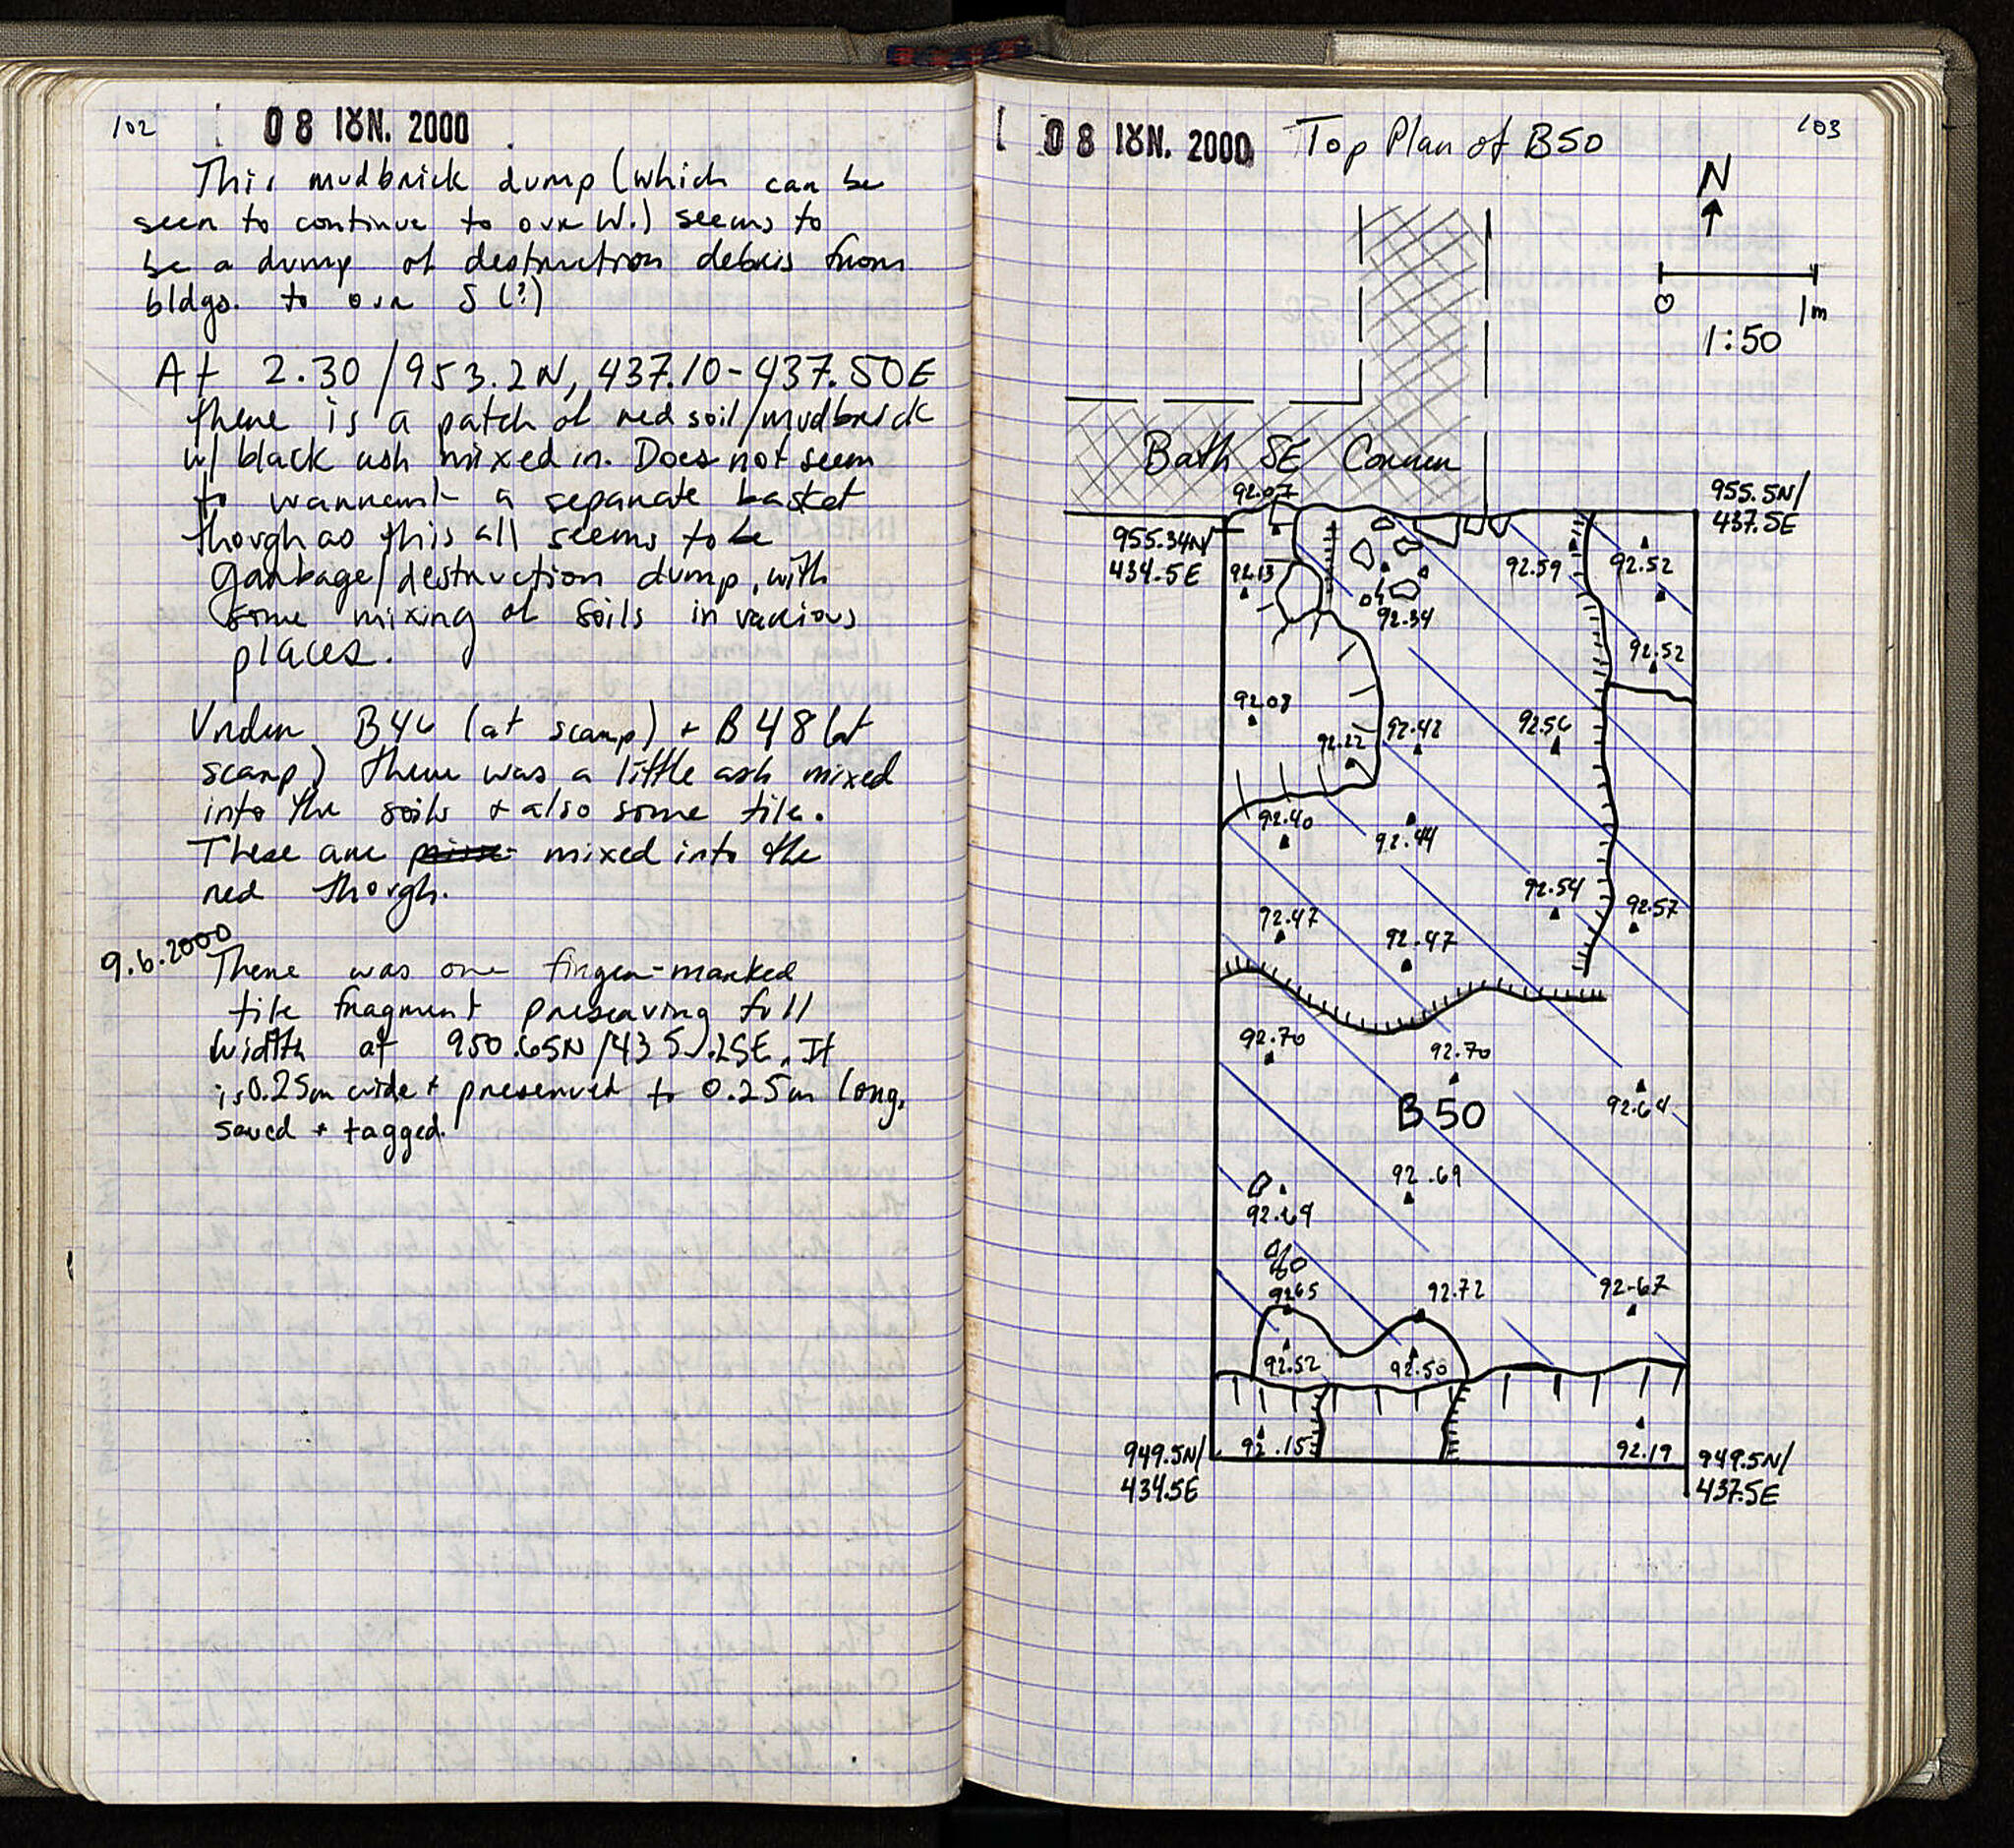 102
08 ΙȣΝ. 2000
This mudbrick dump (which can be
seen to continue to our W.) seems to
be a dump of destruction debris from
bldgs. to our S (?)
At 2.30/953.2N, 437.10-437.50E
there is a patch of red soil/mudbrick
w/ black ash mixed in. Does not seem
to warrent a separate basket
though as this all seems to be
garbage/destruction dump, with
some mixing of soils in various
places.
Under B46 (at scarp) + B48 (at
scarp) there was a little ash mixed
into the soils + also some tile.
These are mixed into the
red though.
9.6.2000
There was one finger-marked
tile fragment preserving full
width at 950.65N/435.25E. It
is 0.25m wide + preserved to 0.25m long,
saved + tagged.
08 ΙȣΝ. 2000
Top Plan of B50
103
N
0
1m
1:50
Bath SE Corner
92.07
955.5N/
437.5E
955.34N/
434.5E
92.13
92.59
92.52
92.34
92.52
92.08
92.22
92.42
92.56
92.40
92.44
92.54
92.57
92.47
92.47
92.70
92.70
92.64
B50
92.69
92.69
92.65
92.72
92.67
92.52
92.50
92.15
92.19
949.5N/
434.5E
949.5N/
437.5E